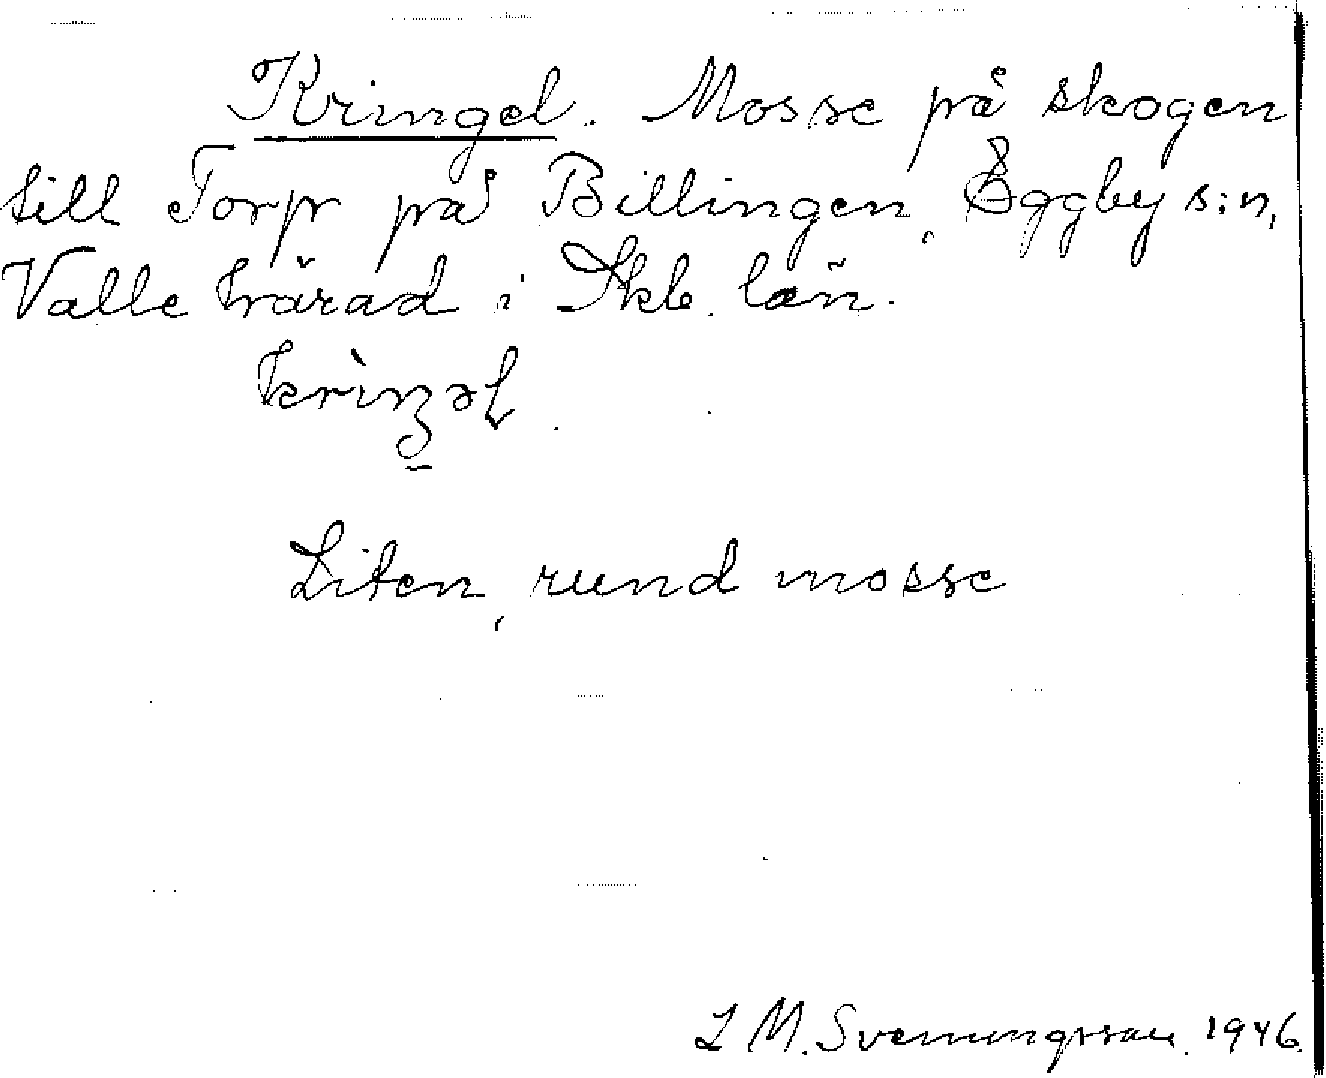 Kringel. Mosse på skogen
till Torp på Billingen, Eggby s:n,
Valle härad i Skb. län.
krìŋəɫ.
Liten, rund mosse
L M. Svenungsson. 1946.